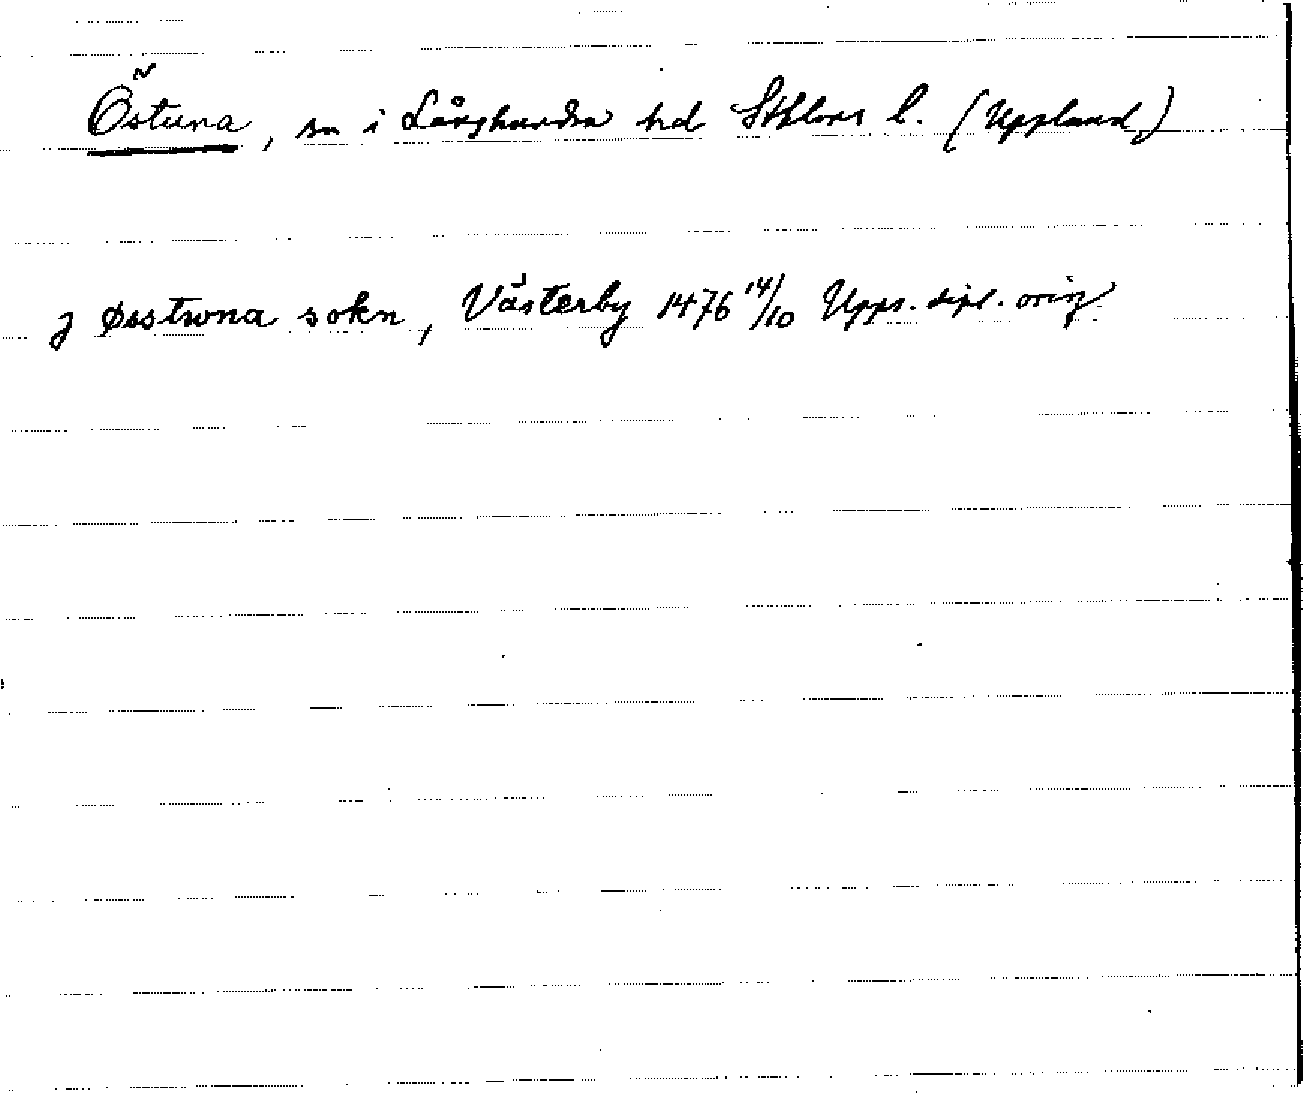 Östuna, sn i Långhundra hd Sthlms l. (Uppland)
j Østwna sokn, Västerby 1476 14/10 Upps. dipl. orig